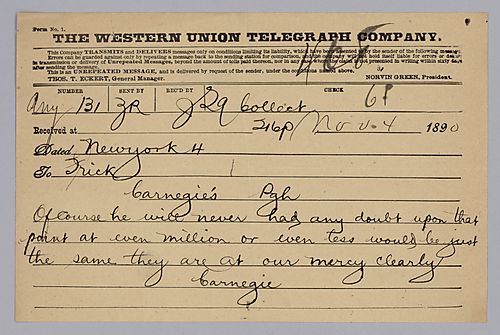 Form No. 1.
THE WESTERN UNION TELEGRAPH COMPANY.
This Company TRANSMITS and DELIVERS messages only on conditions limiting its liability, which have been assented to by the sender of the following message.
Errors can be guarded against only by repeating a message back to the sending station for comparison, and the Company will not hold itself liable for errors or delays
in transmission or delivery of Unrepeated Messages, beyond the amount of tolls paid thereon, nor in any case where the claim is not presented in writing within sixty days
after sending the message.
This is an UNREPEATED MESSAGE, and is delivered by request of the sender, under the conditions named above.
THOS. T. ECKERT, General Manager. NORVIN GREEN, President.
NUMBER SENT BY REC'D BY CHECK
131 Collect
Received at 216p Nov 4 1890
Dated Newyork 4
To Frick
Carnegie's Pgh
Of course he will never had any doubt upon that
point at even million or even less would be just
the same they are at our mercy clearly
Carnegie